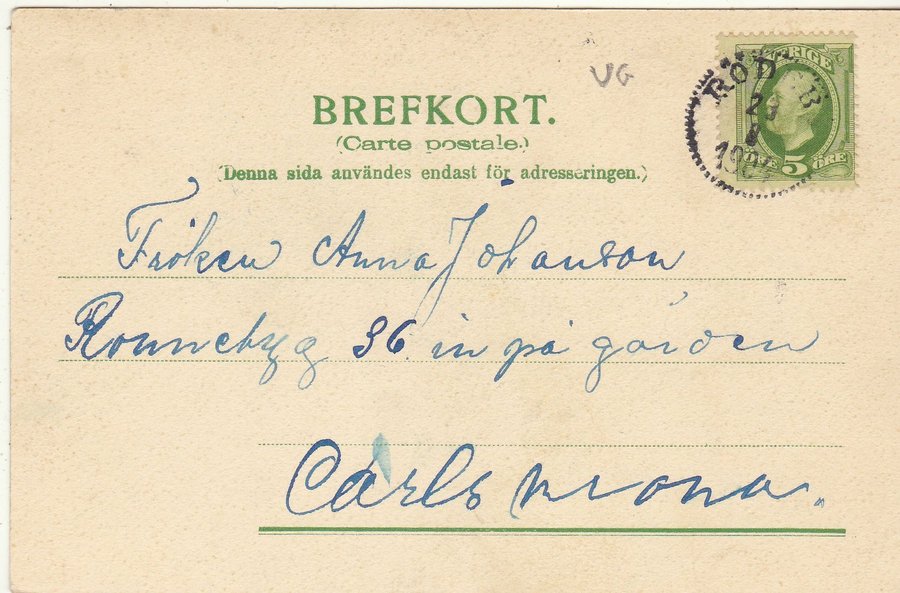 UG
BREFKORT.
(Carte postale.)
(Denna sida användes endast för adresseringen.)
SVERIGE
5 ÖRE
RÖD
29
Fröken Anna Johanson
Ronnebyg 36. in på gården
Carlskrona.